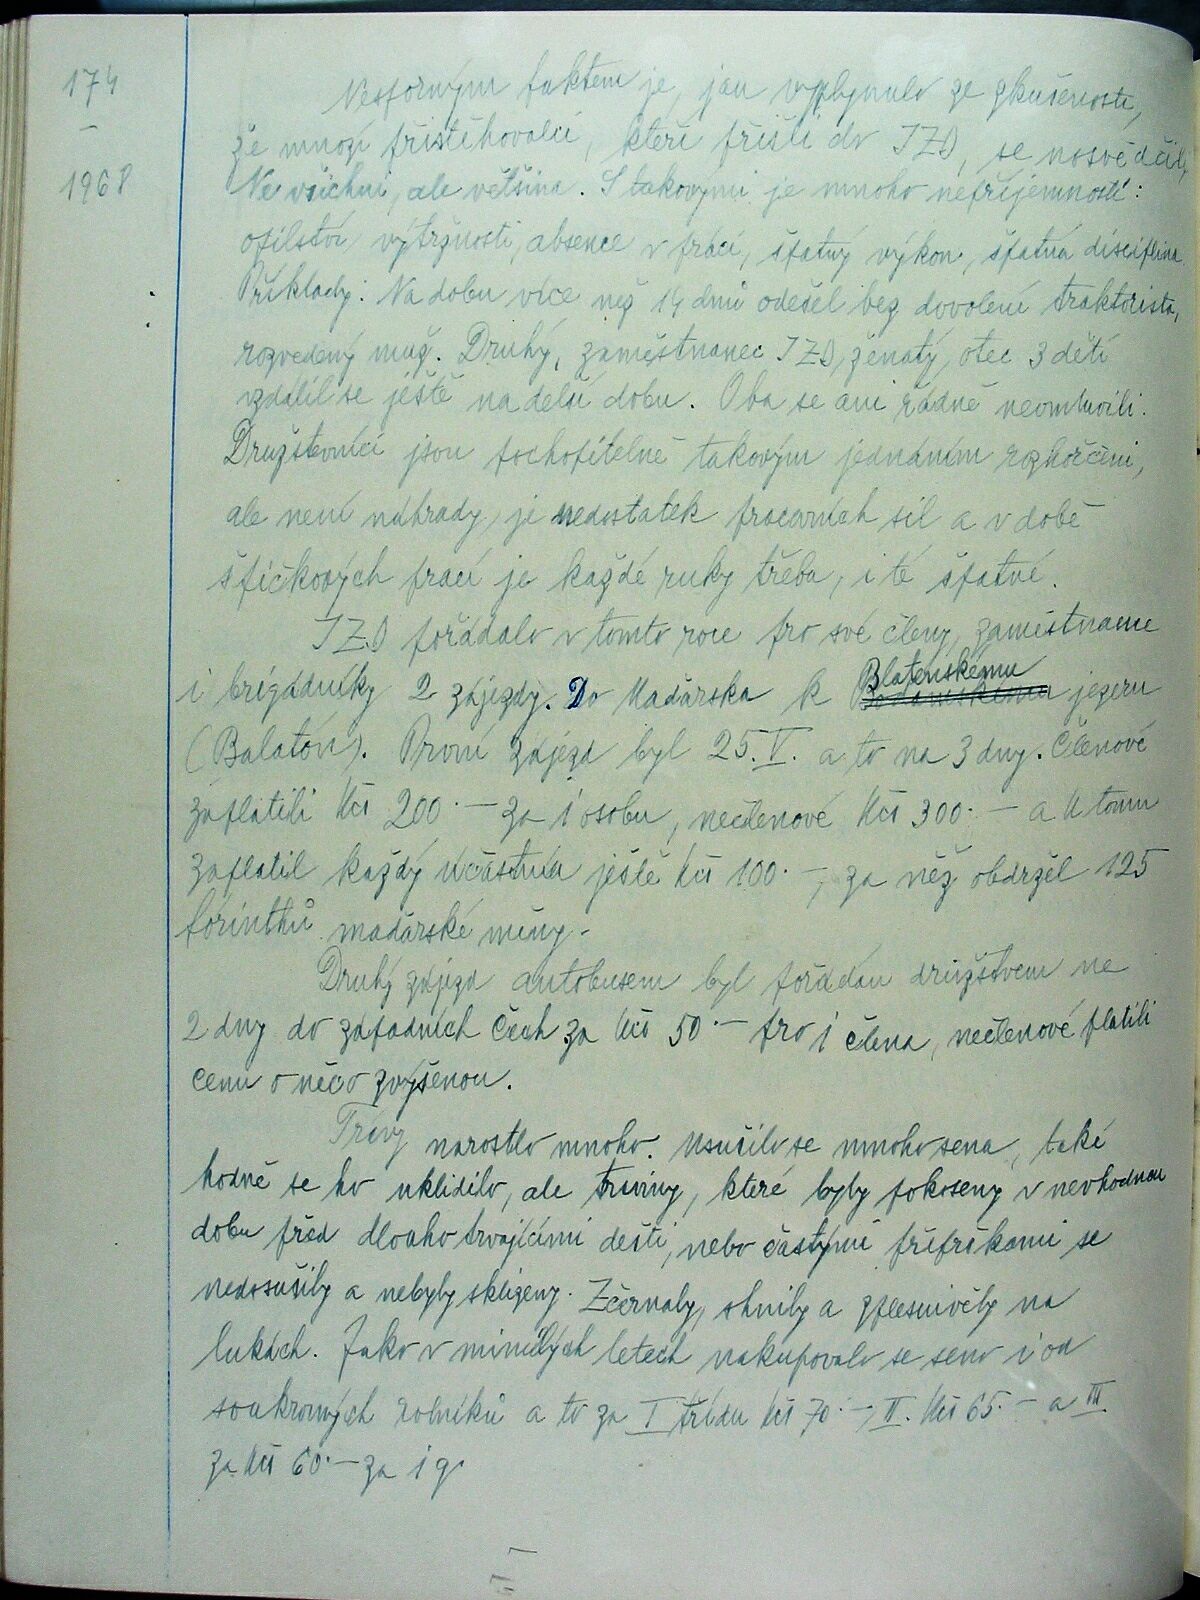 174
–
1968
Nesporným faktem je, jak vyplynulo ze zkušenosti,
že mnozí přistěhovalci, kteří přišli do JZD, se neosvědčili,
Ne všichni, ale většina. S takovými je mnoho nepříjemností:
opilství, výtržnosti, absence v práci, špatný výkon, špatná disciplina.
Příklady: Na dobu více než 14 dnů odešel bez dovolení traktorista,
rozvedený muž. Druhý, zaměstnanec JZD, ženatý, otec 3 dětí
vzdálil se ještě na delší dobu. Oba se ani řádně neomluvili.
Družstevníci jsou pochopitelně takovým jednáním rozhořčeni,
ale není náhrady, je nedostatek pracovních sil a v době
špičkových prací je každé ruky třeba, i té špatné.
JZD pořádalo v tomto roce pro své členy, zaměstnance
i brigádníky 2 zájezdy. Do Maďarska k Blatenskému jezeru
(Balatón). První zájezd byl 25. V. a to na 3 dny. Členové
zaplatili Kčs 200.– za 1 osobu, nečlenové Kčs 300.– a k tomu
zaplatil každý účastník ještě Kčs 100.–, za něž obdržel 125
forinthů maďarské měny.
Druhý zájezd autobusem byl pořádán družstvem na
2 dny do západních Čech za Kčs 50.– pro 1 člena, nečlenové platili
cenu o něco zvýšenou.
Trávy narostlo mnoho. Usušilo se mnoho sena, také
hodně se ho uklidilo, ale traviny, které byly pokoseny v nevhodnou
dobu před dlouho trvajícími dešti, nebo častými přeprškami se
nedosušily a nebyly sklizeny. Zčernaly, shnily a zplesnivěly na
lukách. Jako v minulých letech nakupovalo se seno i od
soukromých rolníků a to za I třídu Kčs 70.–, II. Kčs 65.– a III
za Kčs 60.– za 1 q.